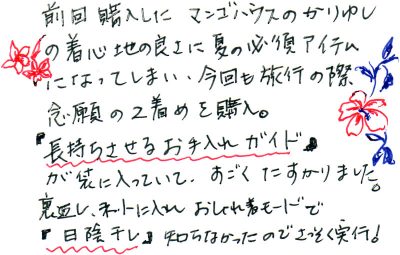 前回購入した マンゴハウスのかりゆし
の着心地の良さに夏の必須アイテム
になってしまい、今回も旅行の際、
念願の2着めを購入。
『長持ちさせるお手入れガイド』
が袋に入っていて、すごくたすかりました。
裏返し、ネットに入れ おしゃれ着モードで
『日陰干し』知らなかったのでさっそく実行!